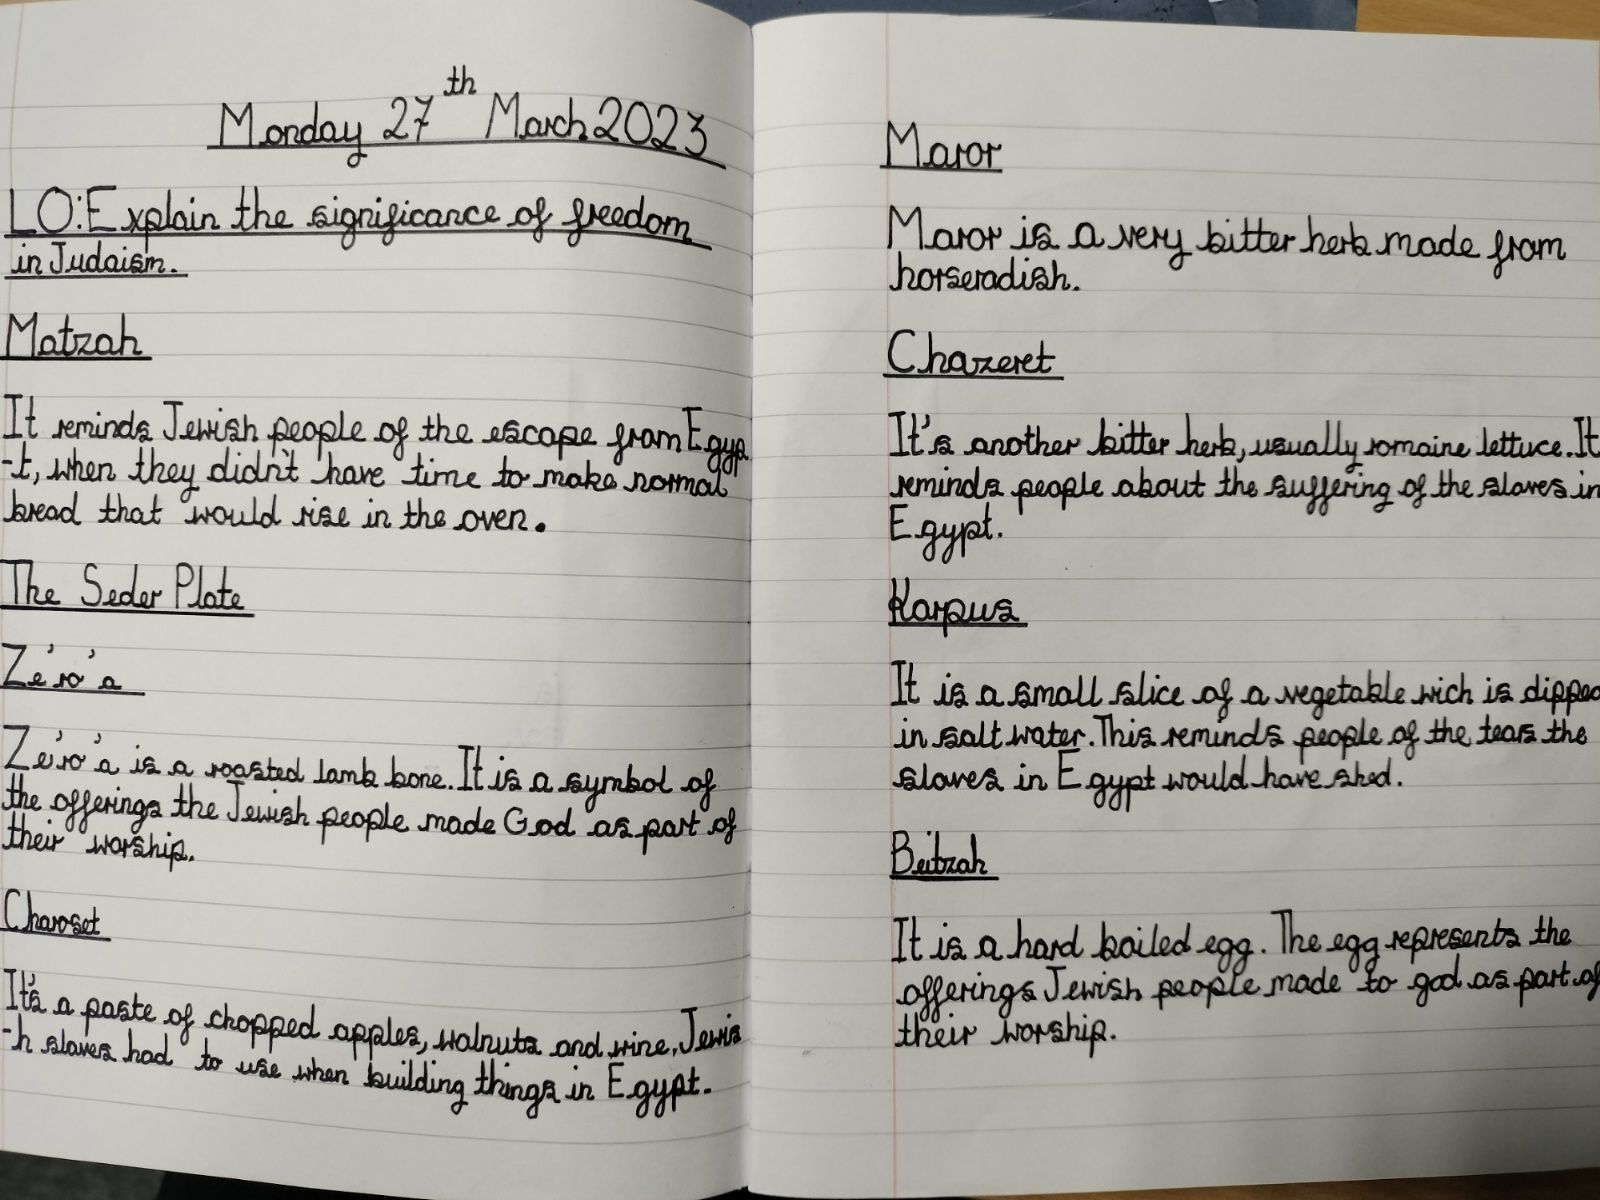 Monday 27th March 2023
LO: Explain the significance of freedom
in Judaism.
Matzah
It reminds Jewish people of the escape from Egyp
-t, when they didn't have time to make normal
bread that would rise in the oven.
The Seder Plate
Ze'ro'a
Ze'ro'a is a roasted lamb bone. It is a symbol of
the offerings the Jewish people made God as part of
their worship.
Charoset
It's a paste of chopped apples, walnuts and wine, Jewis
-h slaves had to use when building things in Egypt.
Maror
Maror is a very bitter herb made from
horseradish.
Chazeret
It's another bitter herb, usually romaine lettuce. It
reminds people about the suffering of the slaves in
Egypt.
Karpus
It is a small slice of a vegetable wich is dipped
in salt water. This reminds people of the tears the
slaves in Egypt would have shed.
Beitzah
It is a hard boiled egg. The egg represents the
offerings Jewish people made to god as part of
their worship.